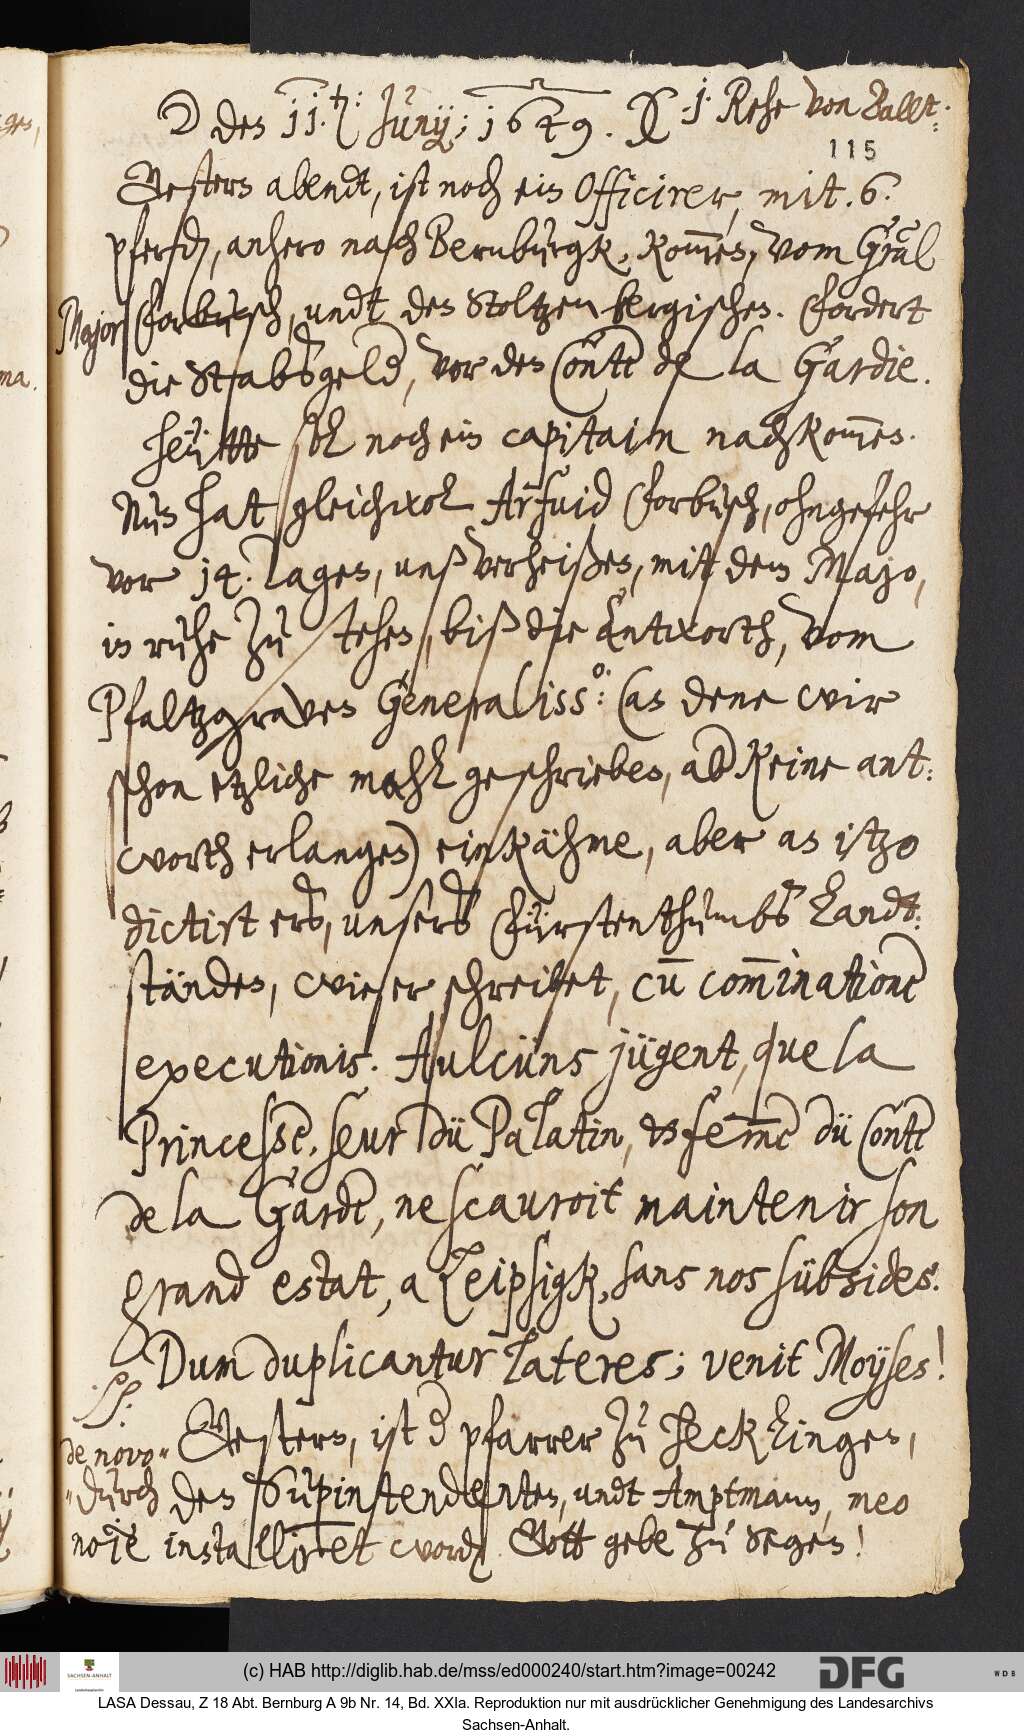 ☽ den 11.ten: Junij; 1629. .1. Rese von Ballt:
115
Gestern abendt, ist noch ein Officirer, mit .6.
pferdn, anhero nach Bernburgk, kom̄en, vom Gral
Major Forbusch, undt den Stoltzenbergischen. Fordert
die Stabsgeld, vor den Conte de la Gardie.
Heütte soll noch ein capitain nachkom̄en.
Nun hat gleichwol Arfuid Forbusch, ohngefehr
vor 14. Tagen, unß verheißen, mitt dem Majo,
in ruhe zu stehen, biß die Antworth, vom
Pfaltzgraven Generalisso: (an dene wir
schon etzliche mahl geschrieben, ab keine ant:
worth erlangen) einkähme, aber an itzo
dictirt ers, unsers Fürstenthumbs Landt:
ständen, wie er schreibet, cū com̄inatione
executionis. Aulcüns jügent, que la
Princesse, seur dü Palatin, & fem̄e dü Conte
de la Garde, ne scauroit maintenir son
grand estat, a Leipsigk, sans nos sübsides.
Dum duplicantur Lateres; venit Moÿses!
Gestern, ist d pfarrer zu Hecklingen,
de novo durch den Supintendenten, undt Amptmann, meo
noīe installiret word. Gott gebe zu Segen!
(c) HAB http://diglib.hab.de/mss/ed000240/start.htm?image=00242
SACHSEN-ANHALT
DFG
WDB
LASA Dessau, Z 18 Abt. Bernburg A 9b Nr. 14, Bd. XXIa. Reproduktion nur mit ausdrücklicher Genehmigung des Landesarchivs
Sachsen-Anhalt.